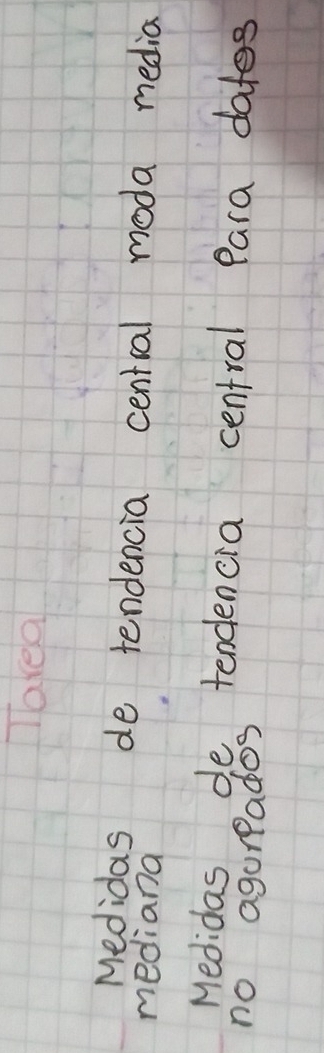 Tarea
Medidas de tendencia central moda media
mediana
Medidas de tendencia central Para datos
no agurpados